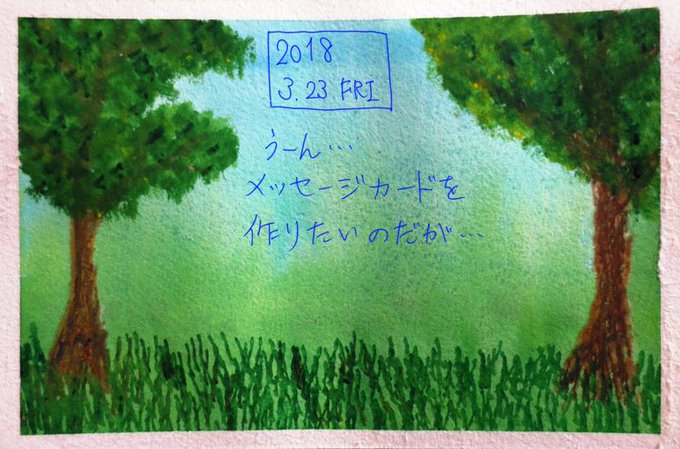 2018
3.23 FRI
うーん…
メッセージカードを
作りたいのだが…